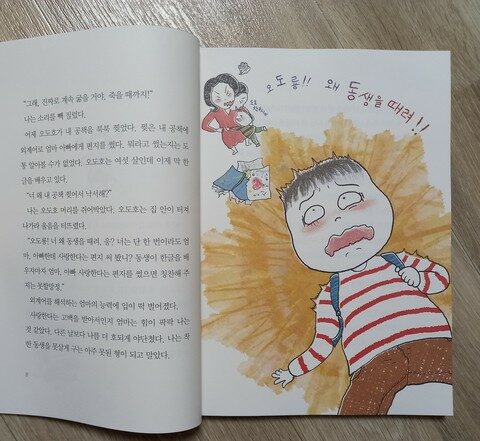 "그래, 진짜로 계속 굶을 거야, 죽을 때까지!"
나는 소리를 빽 질렀다.
어제 오도호가 내 공책을 북북 찢었다. 찢은 내 공책에
외계어로 엄마 아빠에게 편지를 썼다. 뭐라고 썼는지는 도
통 알아볼 수가 없었다. 오도호는 여섯 살인데 이제 막 한
글을 배우고 있다.
"너 왜 내 공책 찢어서 낙서해?"
나는 오도호 머리를 쥐어박았다. 오도호는 집 안이 터져
나가라 울음을 터뜨렸다.
"오도룡! 너 왜 동생을 때려, 응? 너는 단 한 번이라도 엄
마, 아빠한테 사랑한다는 편지 써 봤니? 동생이 한글을 배
우자마자 엄마, 아빠 사랑한다는 편지를 썼으면 칭찬해 주
지는 못할망정."
외계어를 해석하는 엄마의 능력에 입이 떡 벌어졌다.
사랑한다는 고백을 받아서인지 엄마는 힘이 팍팍 나는
것 같았다. 다른 날보다 나를 더 호되게 야단쳤다. 나는 착
한 동생을 못살게 구는 아주 못된 형이 되고 말았다.
8
오도룡!! 왜 동생을 때려!!